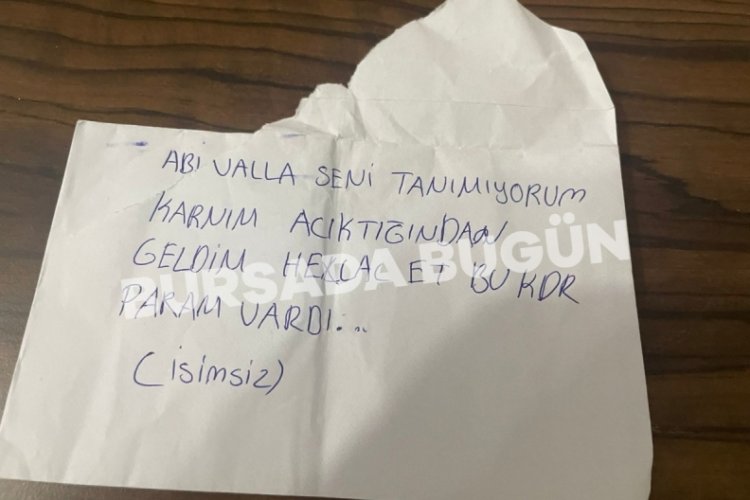 ABI VALLA SENİ TANIMIYORUM
KARNIM ACIKTIĞINDAN
GELDİM HELLAL ET BU KDR
PARAM VARDI...
(isimsiz)
BURSADA BUGÜN